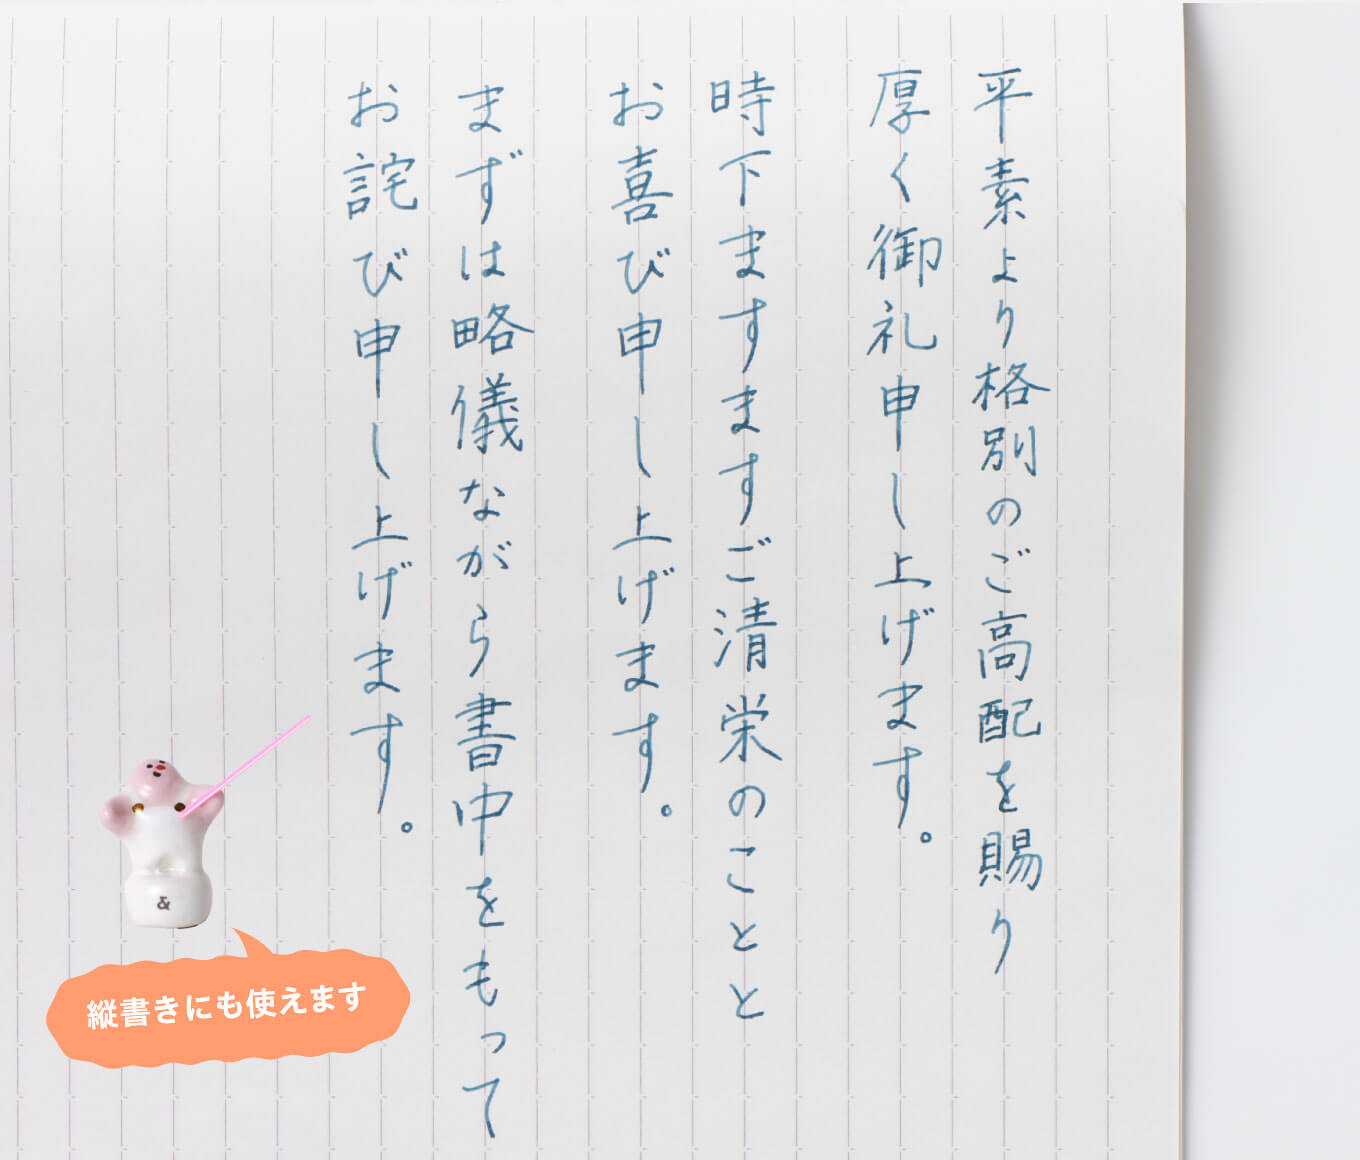 平素より格別のご高配を賜り
厚く御礼申し上げます。
時下ますますご清栄のことと
お喜び申し上げます。
まずは略儀ながら書中をもって
お詫び申し上げます。
&
縦書きにも使えます